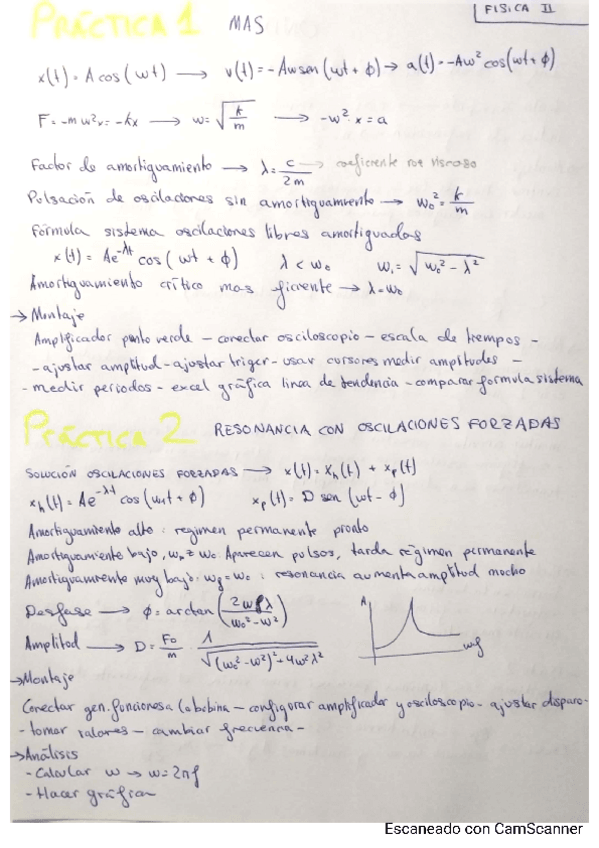 FISICA II
PRÁCTICA 1 MAS
x(t) = A cos(wt) → v(t) = -Aw sen(wt + ϕ) → a(t) = -Aw² cos(wt + ϕ)
F = -mw²x = -kx → w = √(k/m) → -w² · x = a
Factor de amortiguamiento → λ = c/2m → coeficiente roz viscoso
Pulsación de oscilaciones sin amortiguamiento → w₀² = k/m
Fórmula sistema oscilaciones libres amortiguadas
x(t) = Ae^-λt cos(wt + ϕ) λ < w₀ w₁ = √(w₀² - λ²)
Amortiguamiento crítico mas → λ = w₀
→ Montaje
Amplificador punto verde - conectar osciloscopio - escala de tiempos -
- ajustar amplitud - ajustar triger - usar cursores medir amplitudes -
- medir periodos - excel gráfica linea de tendencia - comparar formula sistema
PRÁCTICA 2 RESONANCIA CON OSCILACIONES FORZADAS
SOLUCIÓN OSCILACIONES FORZADAS → x(t) = Xh(t) + xp(t)
xh(t) = Ae^-λt cos(w₁t + ϕ) xp(t) = D sen(wt - ϕ)
Amortiguamiento alto : regimen permanente pronto
Amortiguamiento bajo, Aparecen pulsos, tarda régimen permanente
Amortiguamiento muy bajo : wf = w₀ : resonancia aumenta amplitud mucho
Desfase → ϕ = arctan(2wλ/(w₀² - w²))
Amplitud → D = F₀/m · 1/√((w₀² - w²)² + 4w²λ²)
A
wf
→ Montaje
Conectar gen. funciones a la bobina - configurar amplificador y osciloscopio - ajustar disparo -
- tomar valores - cambiar frecuencia -
→ Análisis
- Calcular w → w = 2πf
- Hacer gráfica
Escaneado con CamScanner